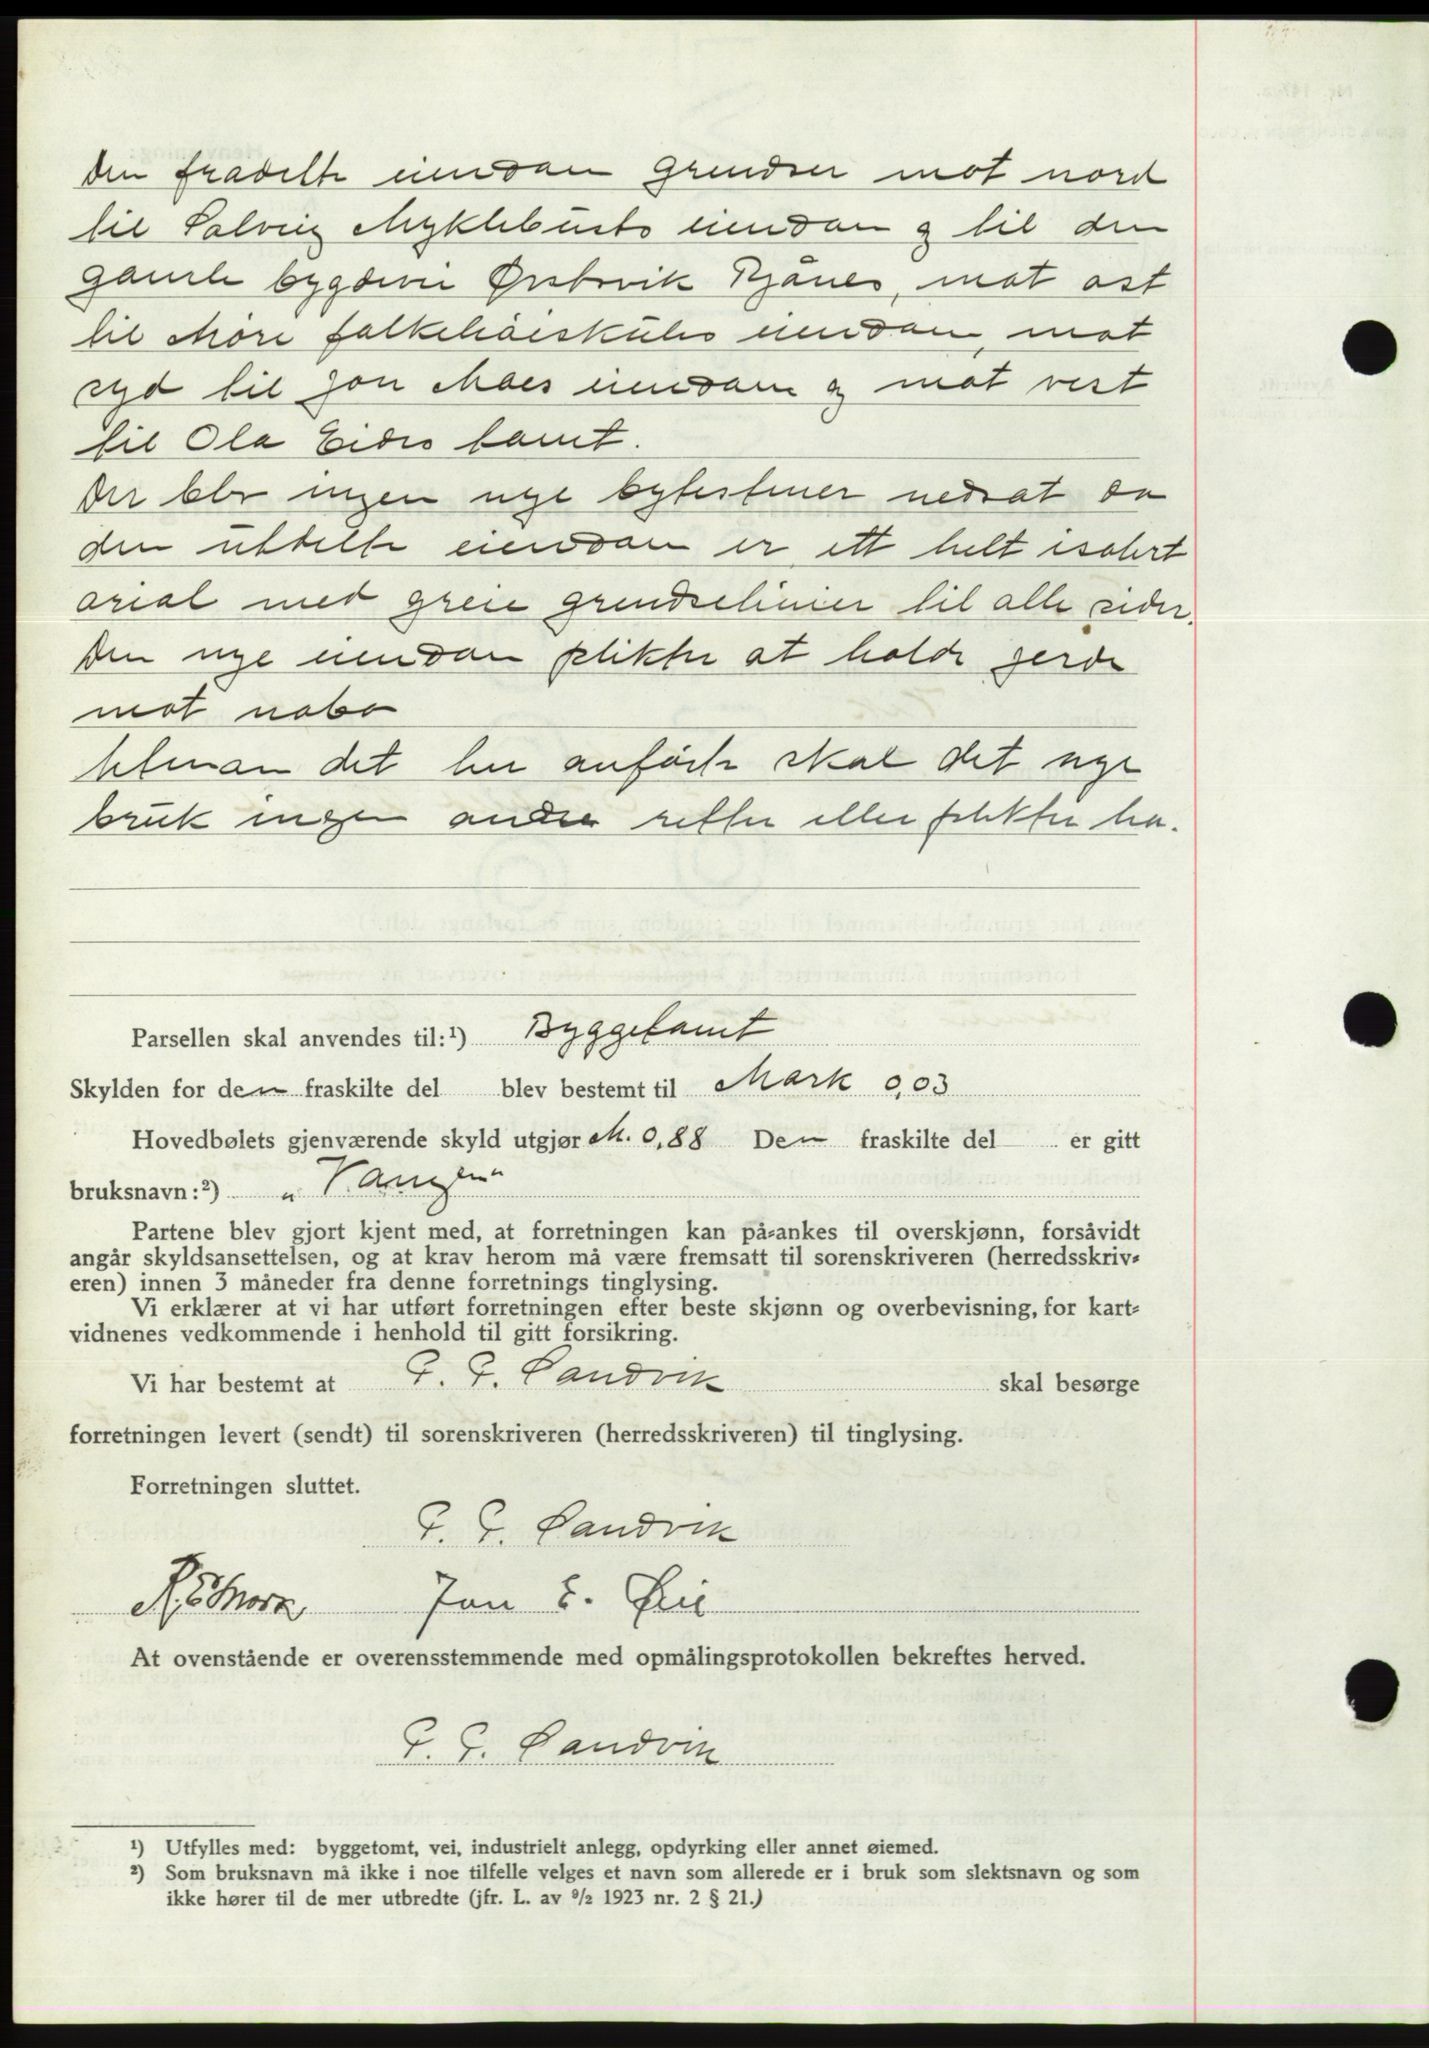 Den fradelte eiendom grendser mot nord
til Solveig Myklebusts eiendom og til den
gamle bygdevei Ørstavik Bjånes, mot ost
til Møre folkehøiskules eiendom, mot
syd til Jon Moes eiendom og mot vest
til Ola Eides tomt.
Der blev ingen nye bytestener nedsat da
den utdelte eiendom er ett helt isolert
arial med greie grendselinier til alle sider.
Den nye eiendom plikter at holde gjerde
mot nabo
Utenom det her anførte skal det nye
bruk ingen andre retter eller plikter ha.
Parsellen skal anvendes til:¹) Byggetomt
Skylden for den fraskilte del blev bestemt til Mark 0,03
Hovedbølets gjenværende skyld utgjør M. 0,88 Den fraskilte del er gitt
bruksnavn:²) „Vangen“
Partene blev gjort kjent med, at forretningen kan på-ankes til overskjønn, forsåvidt
angår skyldsansettelsen, og at krav herom må være fremsatt til sorenskriveren (herredsskriv-
eren) innen 3 måneder fra denne forretnings tinglysing.
Vi erklærer at vi har utført forretningen efter beste skjønn og overbevisning, for kart-
vidnenes vedkommende i henhold til gitt forsikring.
Vi har bestemt at P. P. Sandvik skal besørge
forretningen levert (sendt) til sorenskriveren (herredsskriveren) til tinglysing.
Forretningen sluttet.
P. P. Sandvik
R. E. Mork Jon E. Øie
At ovenstående er overensstemmende med opmålingsprotokollen bekreftes herved.
P. P. Sandvik
¹) Utfylles med: byggetomt, vei, industrielt anlegg, opdyrking eller annet øiemed.
²) Som bruksnavn må ikke i noe tilfelle velges et navn som allerede er i bruk som slektsnavn og som
ikke hører til de mer utbredte (jfr. L. av ⁹/₂ 1923 nr. 2 § 21.)